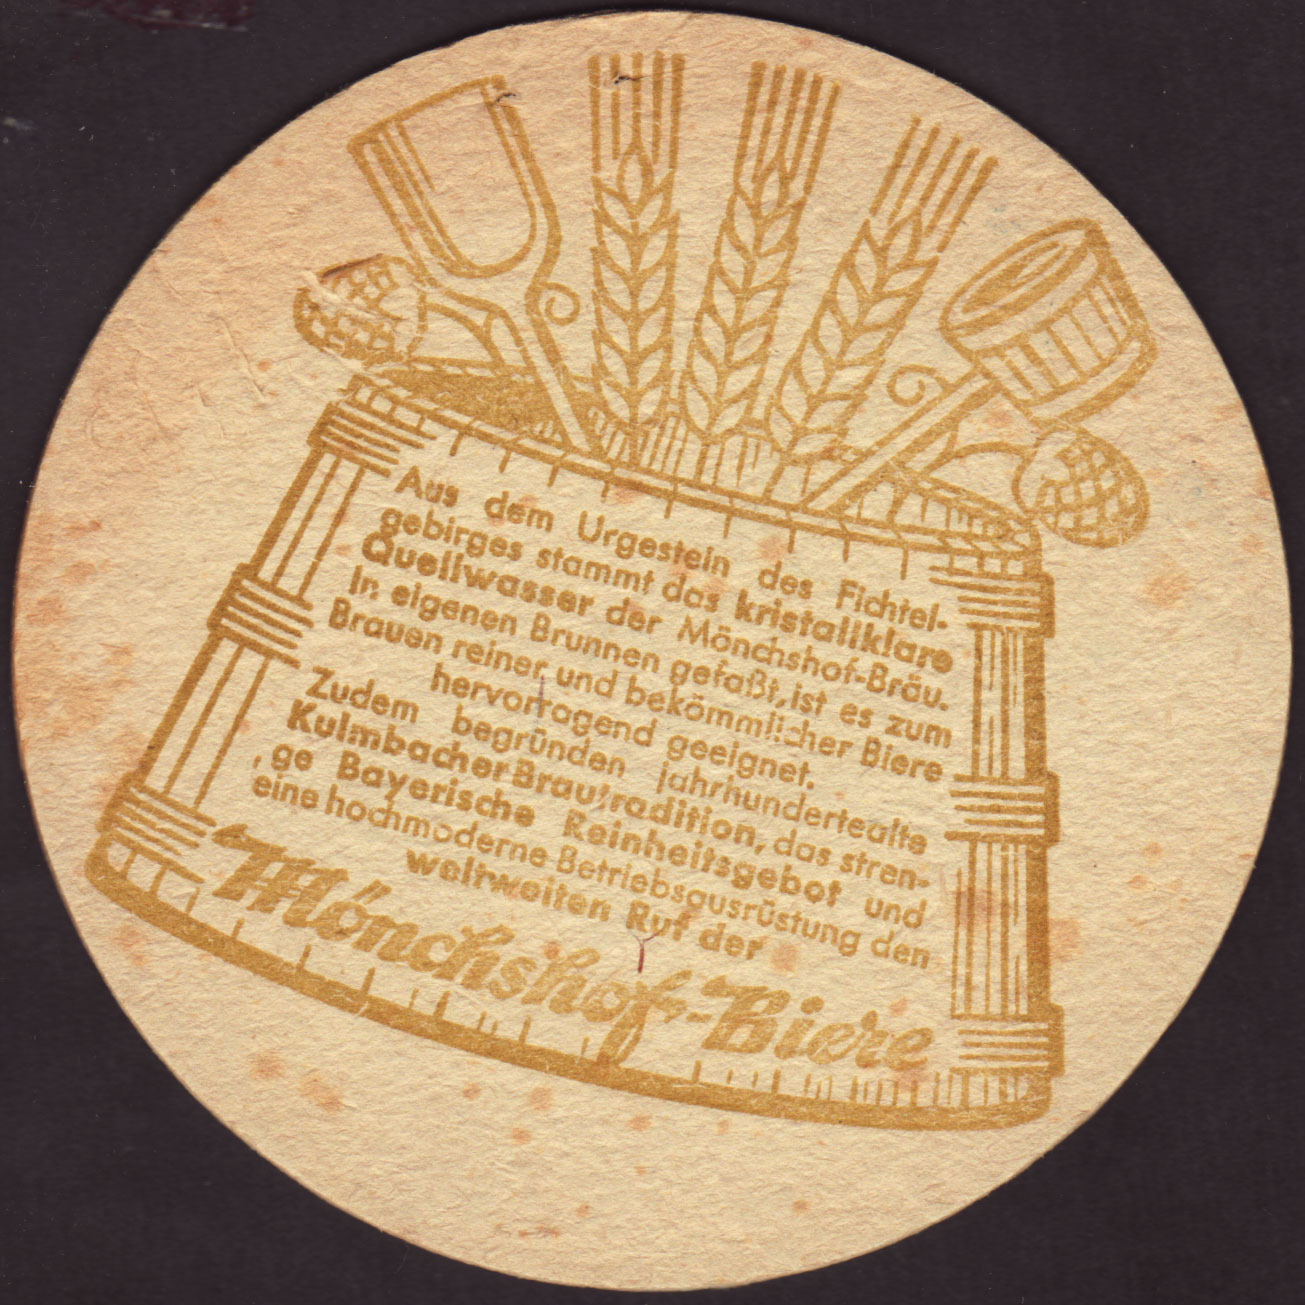 Aus dem Urgestein des Fichtel-
gebirges stammt das kristallklare
Quellwasser der Mönchshof-Bräu.
In eigenen Brunnen gefaßt, ist es zum
Brauen reiner und bekömmlicher Biere
hervorragend geeignet.
Zudem begründen jahrhundertealte
Kulmbacher Brautradition, das stren-
ge Bayerische Reinheitsgebot und
eine hochmoderne Betriebsausrüstung den
weltweiten Ruf der
Mönchshof-Biere